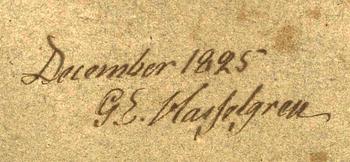 December 1825
G E. Hasselgren